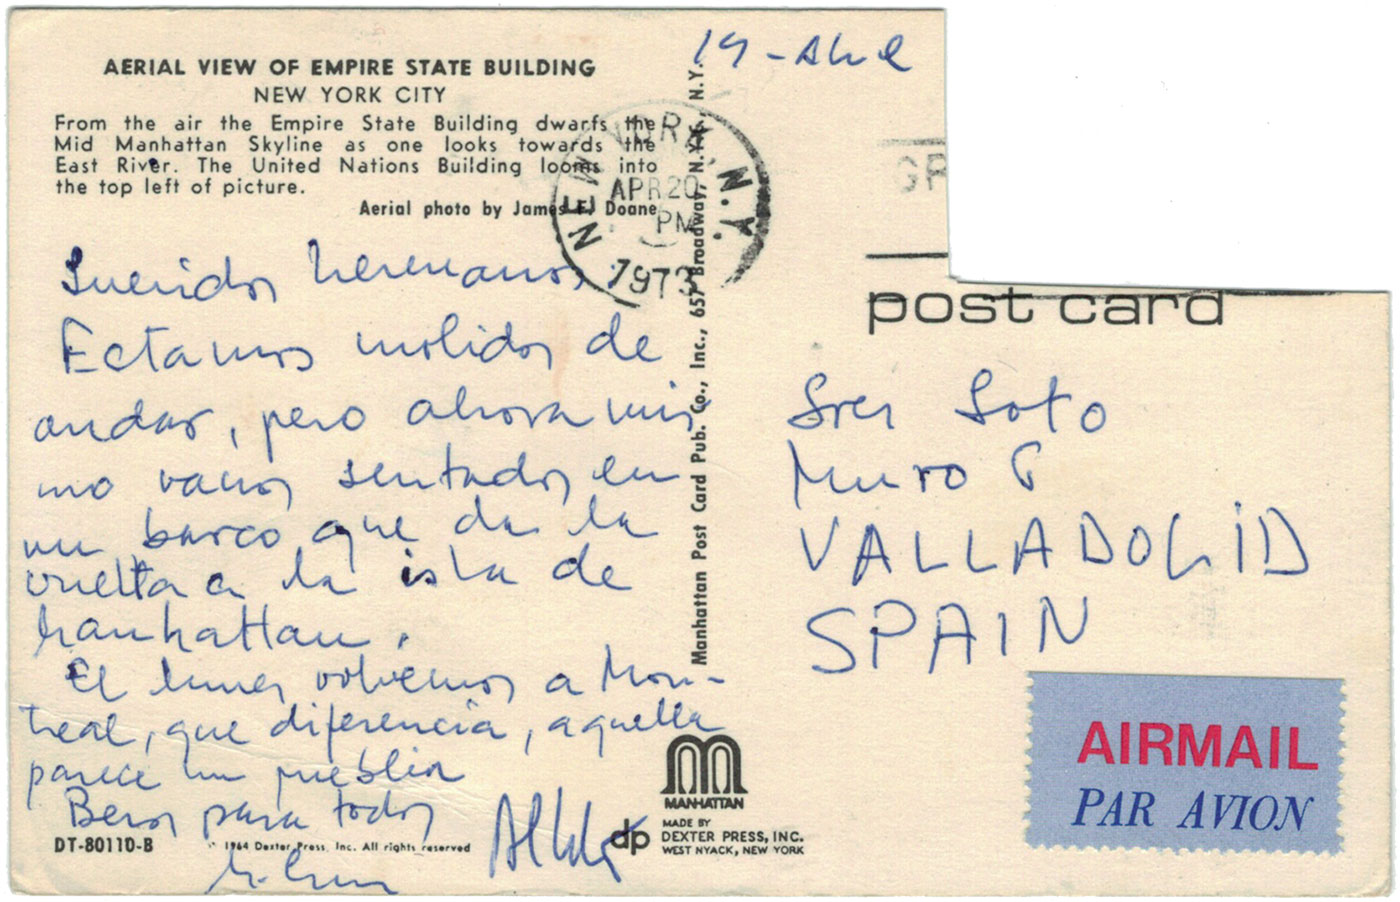 19-Abril
AERIAL VIEW OF EMPIRE STATE BUILDING
NEW YORK CITY
From the air the Empire State Building dwarfs the
Mid Manhattan Skyline as one looks towards the
East River. The United Nations Building looms into
the top left of picture.
Aerial photo by James F. Doane
NEW YORK, N.Y.
APR 20
PM
1973
Queridos hermanos:
Estamos molidos de
andar, pero ahora mis-
mo vamos sentados en
un barco que da la
vuelta a la isla de
Manhattan.
El lunes volvemos a Mon-
treal, que diferencia, aquella
parece un pueblin
Besos para todos
DT-80110-B
© 1964 Dexter Press, Inc. All rights reserved
Manhattan Post Card Pub. Co., Inc., 657 Broadway, N.Y., N.Y.
MANHATTAN
dp
MADE BY
DEXTER PRESS, INC.
WEST NYACK, NEW YORK
post card
Sres Soto
Muro 6
VALLADOLID
SPAIN
AIRMAIL
PAR AVION